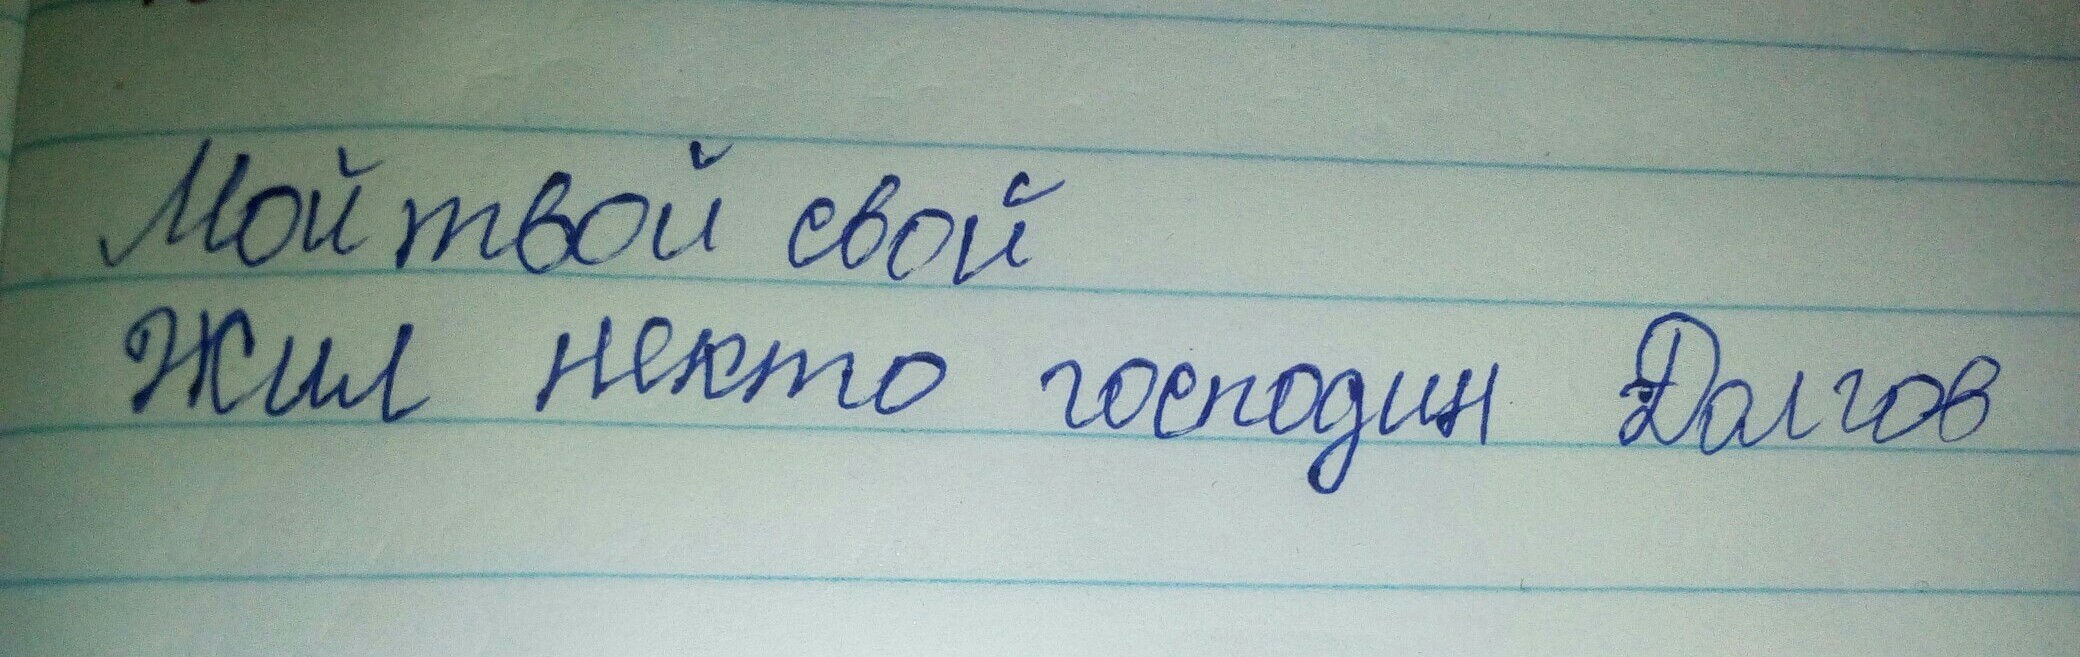 Мой твой свой
Жил некто господин Долгов